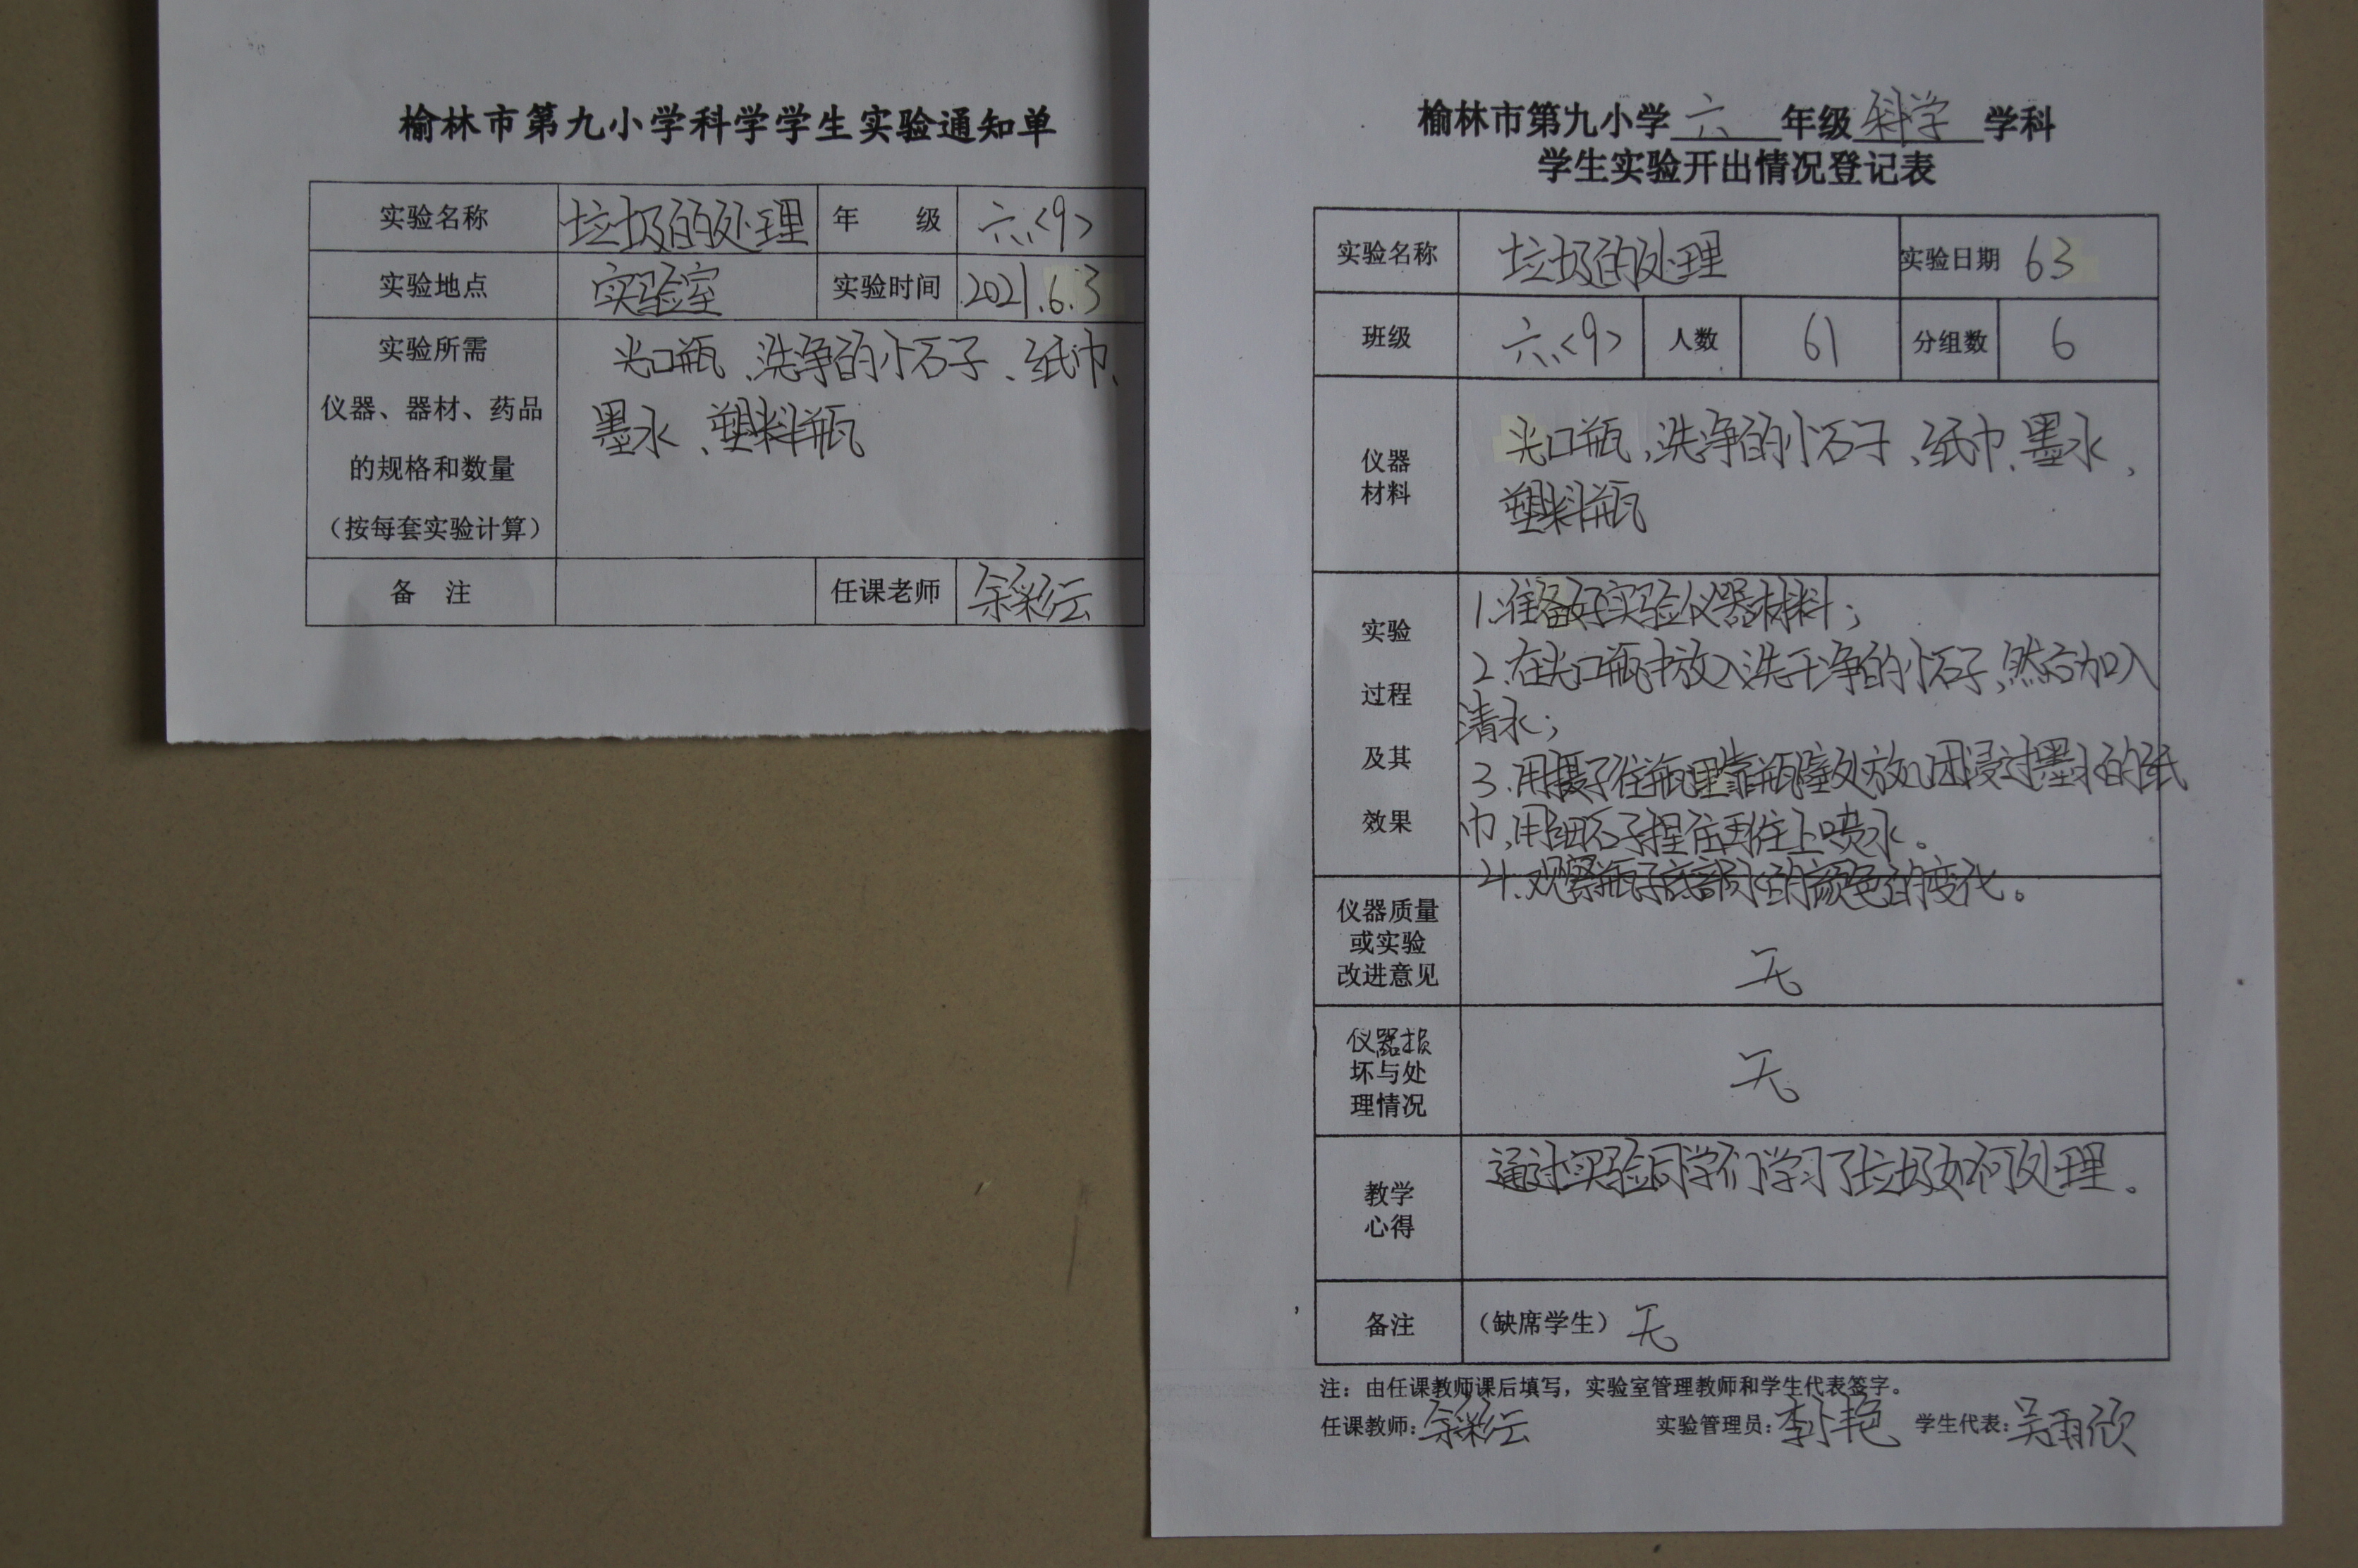 榆林市第九小学科学学生实验通知单
实验名称 垃圾的处理 年 级 六<9>
实验地点 实验室 实验时间 2021.6.3
实验所需
仪器、器材、药品
的规格和数量
（按每套实验计算）
尖口瓶、洗净的小石子、纸巾、
墨水、塑料瓶
备 注 任课老师 余彩云
榆林市第九小学 六 年级 科学 学科
学生实验开出情况登记表
实验名称 垃圾的处理 实验日期 6 3
班级 六<9> 人数 61 分组数 6
仪器
材料
尖口瓶、洗净的小石子、纸巾、墨水、
塑料瓶
实验
过程
及其
效果
1.准备好实验仪器材料；
2.在尖口瓶中放入洗干净的小石子，然后加入
清水；
3.用摄子往瓶里靠瓶壁处放几团浸过墨水的纸
巾，用细石子埋住再往上喷水。
4.观察瓶子底部水的颜色的变化。
仪器质量
或实验
改进意见
无
仪器损
坏与处
理情况
无
教学
心得
通过实验同学们学习了垃圾如何处理。
备注 （缺席学生） 无
注：由任课教师课后填写，实验室管理教师和学生代表签字。
任课教师：余彩云 实验管理员：李小艳 学生代表：吴雨欣